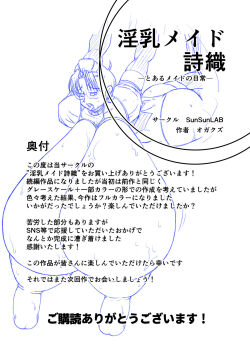 淫乳メイド
詩織
―とあるメイドの日常―
サークル　SunSunLAB
作者：オガクズ
奥付
この度は当サークルの
"淫乳メイド詩織"をお買い上げありがとうございます！
続編作品になりましたが当初は前作と同じく
グレースケール＋一部カラーの形での作成を考えていましたが
色々考えた結果、今作はフルカラーになりました
いかがだったでしょうか？楽しんでいただけましたか？
苦労した部分もありますが
SNS等で応援していただいたおかげで
なんとか完成に漕ぎ着けました
感謝いたします！
この作品が皆さんに楽しんでいただけたら幸いです
それではまた次回作でお会いしましょう！
ご購読ありがとうございます！